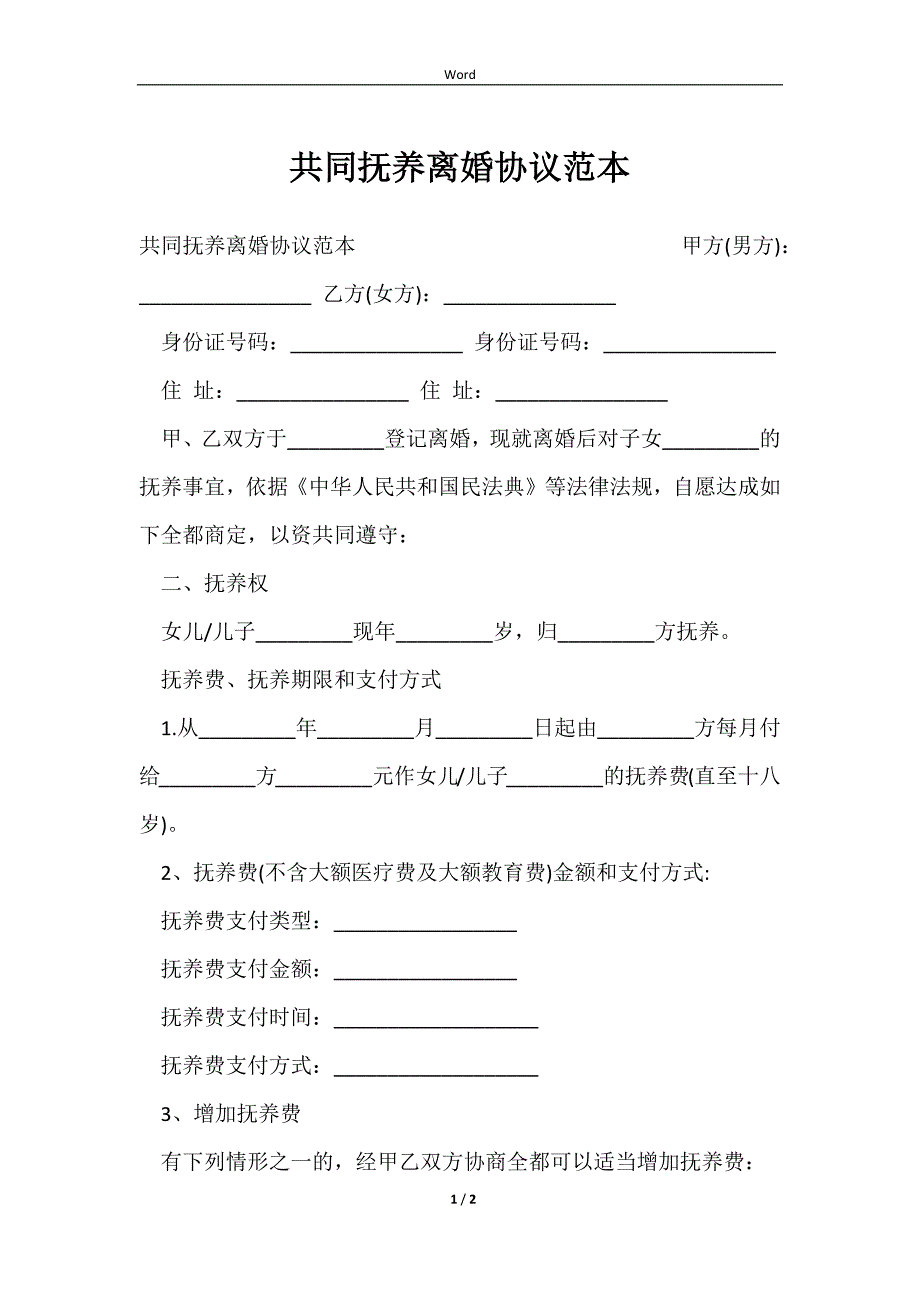 Word
共同抚养离婚协议范本
共同抚养离婚协议范本 甲方(男方)：
________________ 乙方(女方)：________________
身份证号码：________________ 身份证号码：________________
住 址：________________ 住 址：________________
甲、乙双方于_________登记离婚，现就离婚后对子女_________的
抚养事宜，依据《中华人民共和国民法典》等法律法规，自愿达成如
下全都商定，以资共同遵守：
二、抚养权
女儿/儿子_________现年_________岁，归_________方抚养。
抚养费、抚养期限和支付方式
1.从_________年_________月_________日起由_________方每月付
给_________方_________元作女儿/儿子_________的抚养费(直至十八
岁)。
2、抚养费(不含大额医疗费及大额教育费)金额和支付方式:
抚养费支付类型：_________________
抚养费支付金额：_________________
抚养费支付时间：___________________
抚养费支付方式：___________________
3、增加抚养费
有下列情形之一的，经甲乙双方协商全都可以适当增加抚养费：
1 / 2